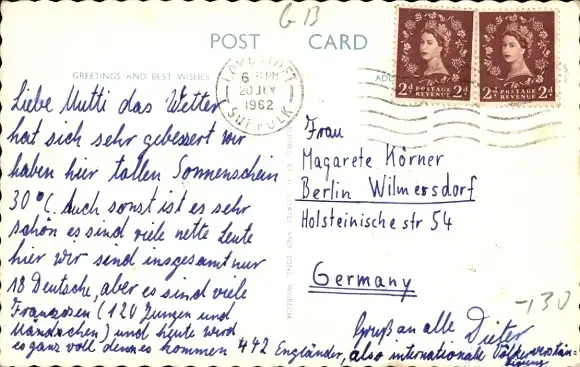 GB
POST CARD
GREETINGS AND BEST WISHES
LOWESTOFT
6 PM
20 JLY
1962
SUFFOLK
2d POSTAGE REVENUE 2d
2d POSTAGE REVENUE 2d
Liebe Mutti das Wetter
hat sich sehr gebessert wir
haben hier tollen Sonnenschein
30°C. Auch sonst ist es sehr
schön es sind viele nette Leute
hier wir sind insgesamt nur
18 Deutsche, aber es sind viele
Franzosen (120 Jungen und
Mändchen) und heute wird
es ganz voll denn es kommen 442 Engländer, also internationale Völkerverstän=
digung
Gruß an alle Dieter
Frau
Magarete Körner
Berlin Wilmersdorf
Holsteinische str 54
Germany
-130